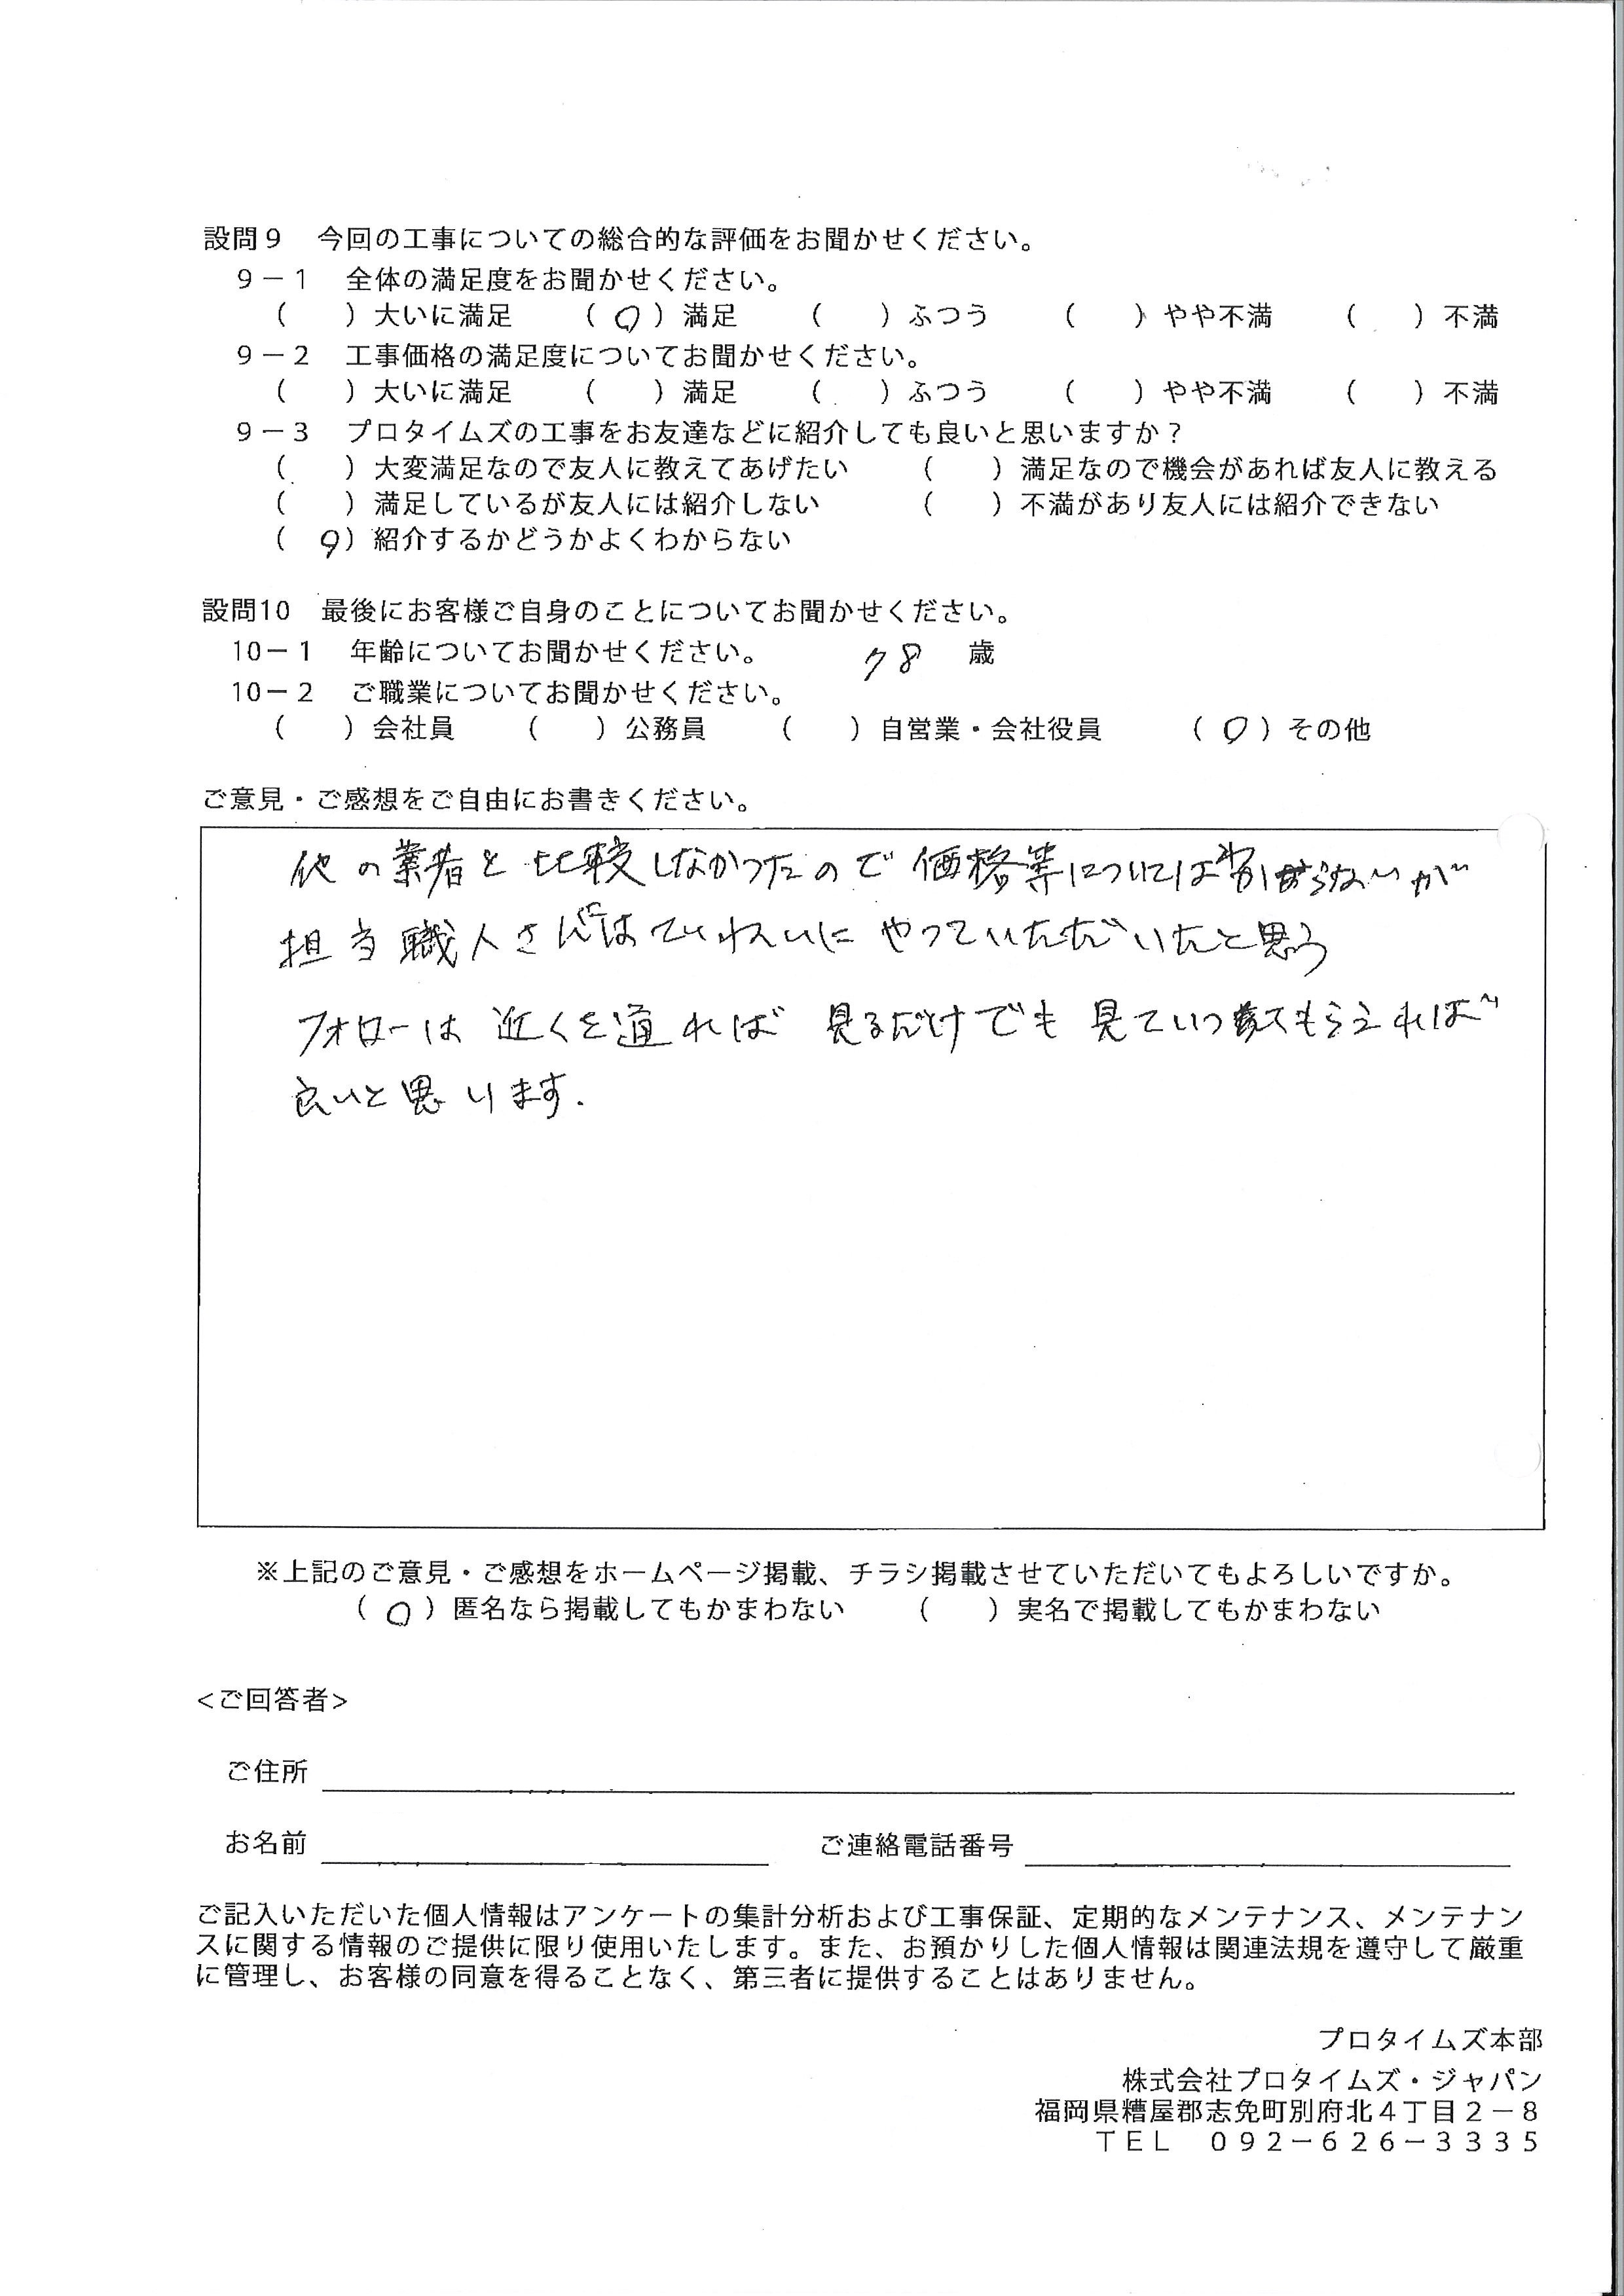 設問9　今回の工事についての総合的な評価をお聞かせください。
9－1　全体の満足度をお聞かせください。
(　　)大いに満足　　(○)満足　　(　　)ふつう　　(　　)やや不満　　(　　)不満
9－2　工事価格の満足度についてお聞かせください。
(　　)大いに満足　　(　　)満足　　(　　)ふつう　　(　　)やや不満　　(　　)不満
9－3　プロタイムズの工事をお友達などに紹介しても良いと思いますか？
(　　)大変満足なので友人に教えてあげたい　　(　　)満足なので機会があれば友人に教える
(　　)満足しているが友人には紹介しない　　(　　)不満があり友人には紹介できない
(○)紹介するかどうかよくわからない
設問10　最後にお客様ご自身のことについてお聞かせください。
10－1　年齢についてお聞かせください。　　78　歳
10－2　ご職業についてお聞かせください。
(　　)会社員　　(　　)公務員　　(　　)自営業・会社役員　　(○)その他
ご意見・ご感想をご自由にお書きください。
他の業者と比較しなかったので価格等についてはわからないが
担当職人さんにはていねいにやっていただいたと思う
フォローは近くを通れば見るだけでも見ていってもらえれば
良いと思います.
※上記のご意見・ご感想をホームページ掲載、チラシ掲載させていただいてもよろしいですか。
(○)匿名なら掲載してもかまわない　　(　　)実名で掲載してもかまわない
<ご回答者>
ご住所
お名前　　ご連絡電話番号
ご記入いただいた個人情報はアンケートの集計分析および工事保証、定期的なメンテナンス、メンテナン
スに関する情報のご提供に限り使用いたします。また、お預かりした個人情報は関連法規を遵守して厳重
に管理し、お客様の同意を得ることなく、第三者に提供することはありません。
プロタイムズ本部
株式会社プロタイムズ・ジャパン
福岡県糟屋郡志免町別府北4丁目2－8
TEL　092－626－3335